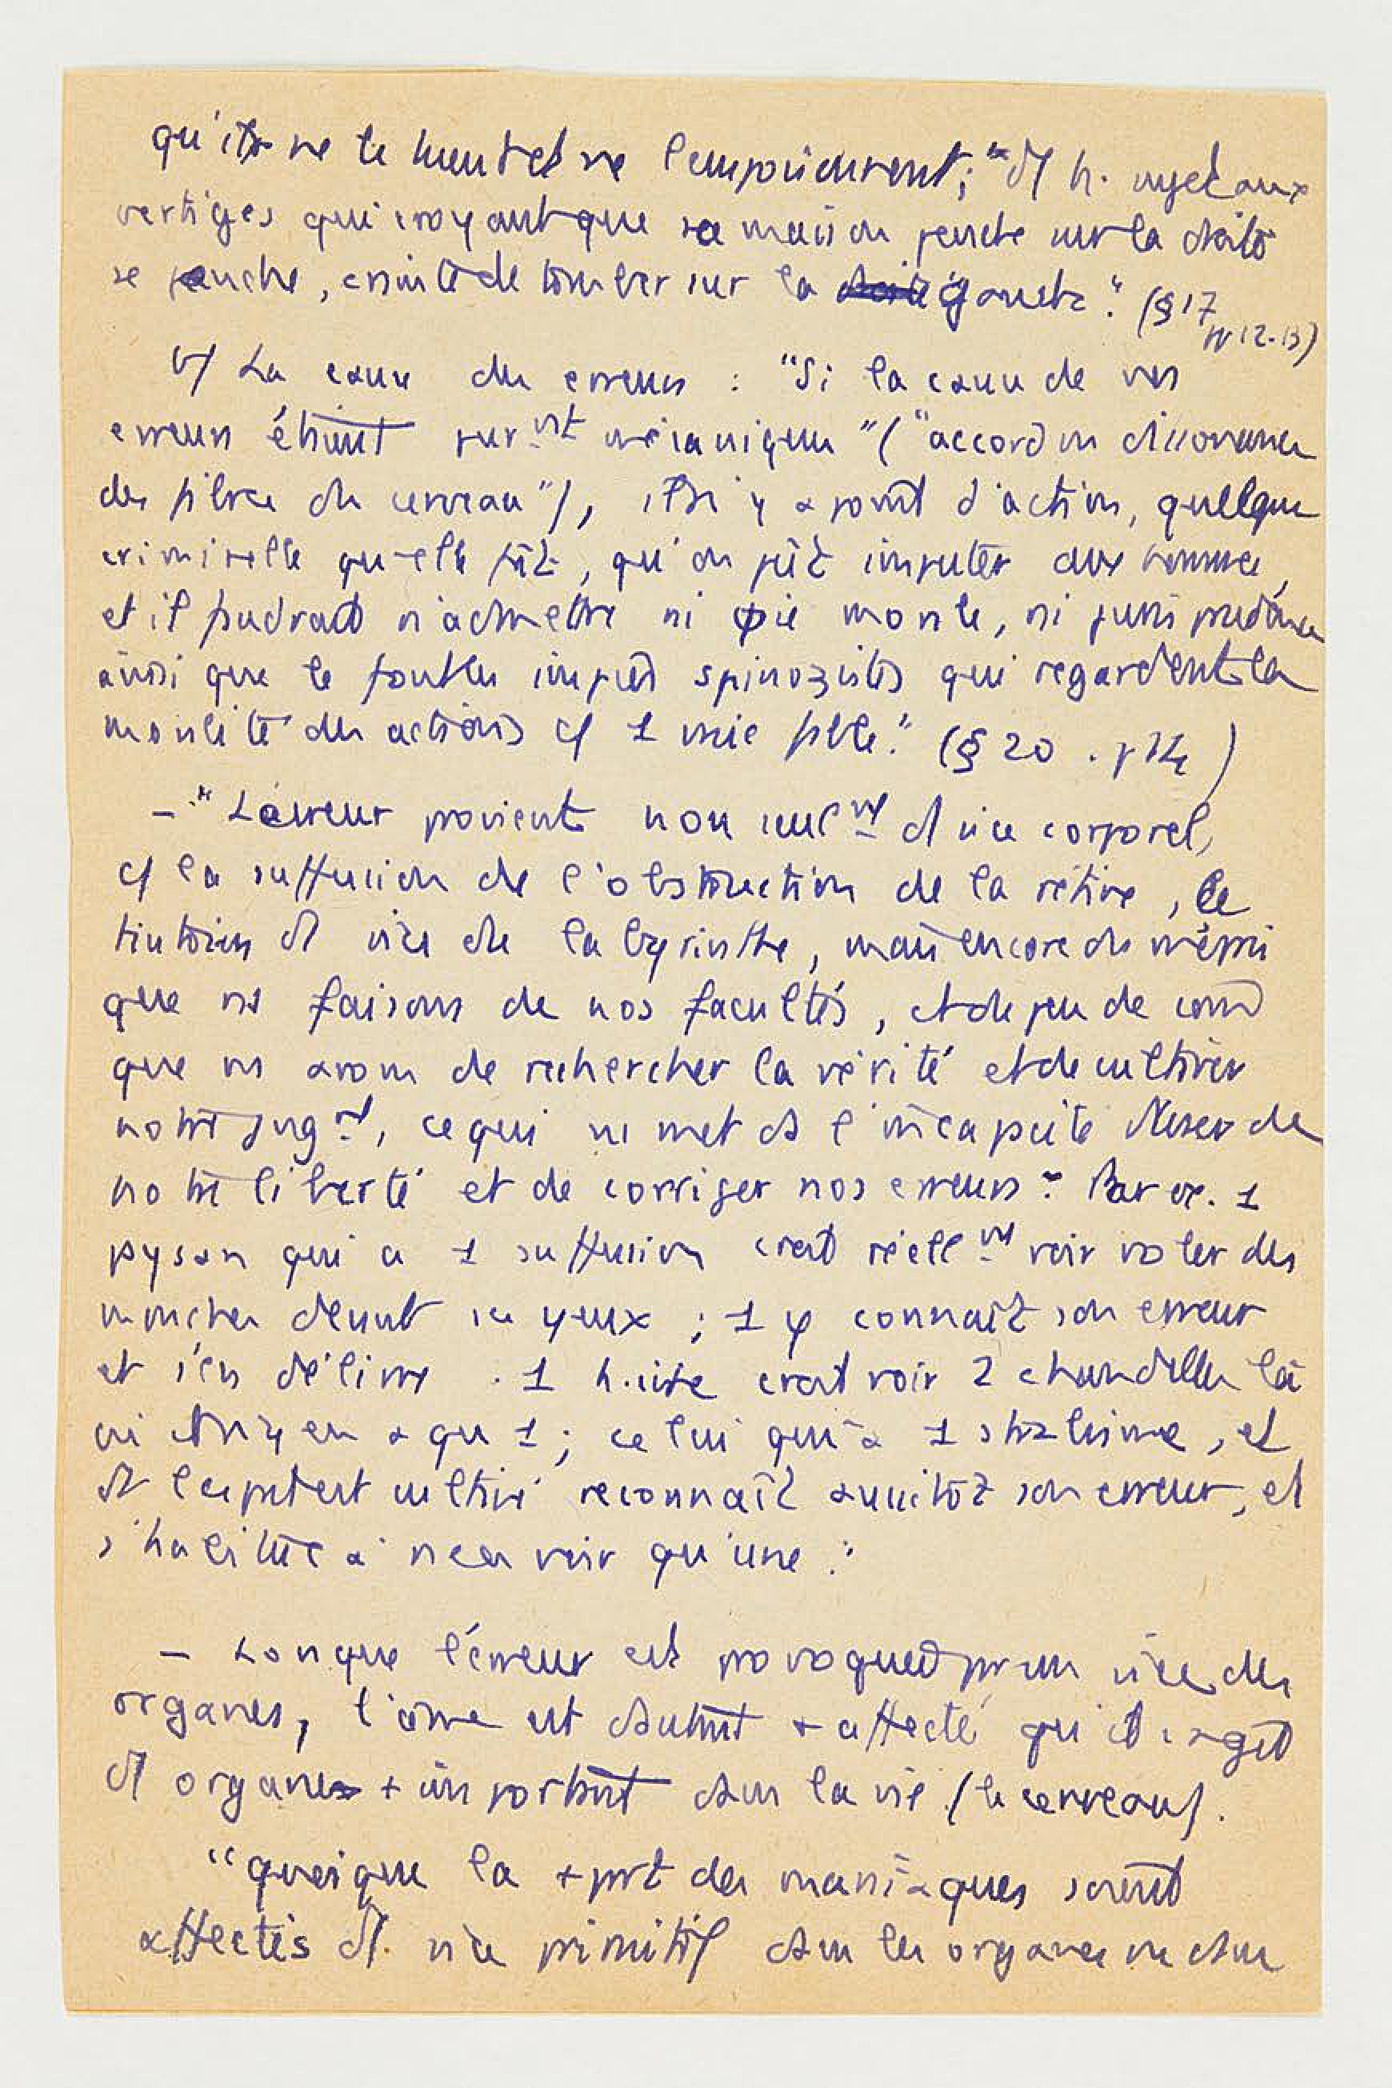 qu'ils ne le heurtent ne l'empoisonnent; "d'1 h. sujet aux
vertiges qui croyant que sa maison penche sur la droite
se penche, crainte de tomber sur la gauche." (§ 17 pp 12-13)
b/ La cause des erreurs : "Si la cause de nos
erreurs étaient purnt mécaniques" ("accord ou dissonance
des fibres du cerveau"), il n'y a point d'action, quelque
criminelle qu'elle fût, qu'on pût imputer aux hommes,
et il faudrait n'admettre ni φie morale, ni jurisprudence
ainsi que le font les impies spinozistes qui regardent la
moralité des actions c/ 1 vraie fable." (§ 20 . p 14)
– "L'erreur provient non seulnt d'1 vice corporel,
c/ la suffusion de l'obstruction de la rétine, le
tintouin d'1 vice de labyrinthe, mais encore du mépris
que ns faisons de nos facultés, et de peu de soin
que ns avons de rechercher la vérité et de cultiver
notre jugnt, ce qui ns met ds l'incapacité d'user de
notre liberté et de corriger nos erreurs". Par ex. 1
paysan qui a 1 suffusion croit réellnt voir voler des
mouches devant ses yeux ; 1 φ connaît son erreur
et s'en délivre . 1 h. ivre croit voir 2 chandelles là
où il n'y en a qu 1 ; celui qui a 1 strabisme, et
dt l'esprit est cultivé reconnaît aussitôt son erreur, et
s'habitue à n'en voir qu'une."
– Lorsque l'erreur est provoquée par un vice des
organes, l'âme est d'autant + affecté qu'il s'agit
d'1 organe + important dans la vie (le cerveau).
"quoique la + part des maniaques soient
affectés d'1. vice primitif dans les organes ou dans